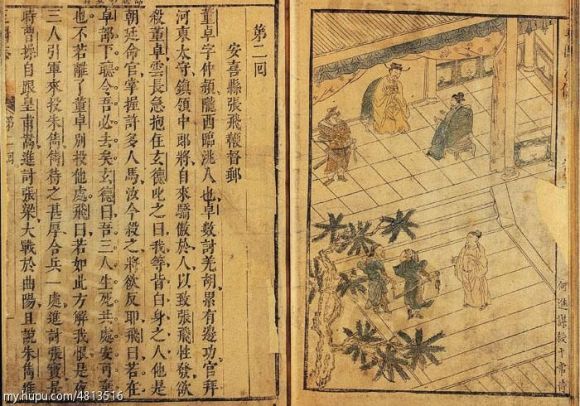 第二回
安喜縣張飛鞭督郵
董卓字仲穎隴西臨洮人也卓數討羌胡累有邊功官拜
河東太守鎮領中郎將自來驕傲於人以致張飛性發欲
殺董卓雲長急抱住玄德叱之曰我等皆白身之人他是
朝廷命官掌握許多人馬汝今殺之將欲反耶飛曰若在
卓部下聽令吾必去矣玄德曰吾三人生死共處安可
也不若離了董卓別投他處飛曰若如此方解我恨是夜
三人引軍來投朱儁儁待之甚厚合兵一處進討張寶是
時曹操自跟皇甫嵩進討張梁大戰於曲陽且說朱儁進
何進謀殺十常侍
my.hupu.com/4813516